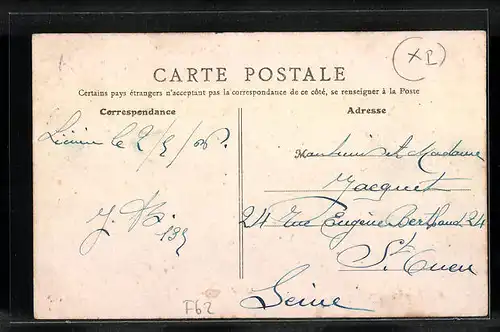 XP
CARTE POSTALE
Certains pays étrangers n'acceptant pas la correspondance de ce côté, se renseigner à la Poste
Correspondance
le 2/5/
J. B.
Adresse
M
Monsieur et Madame
Jacquet
24 Rue Eugène Berthoud 24
St. Ouen
Seine
F62